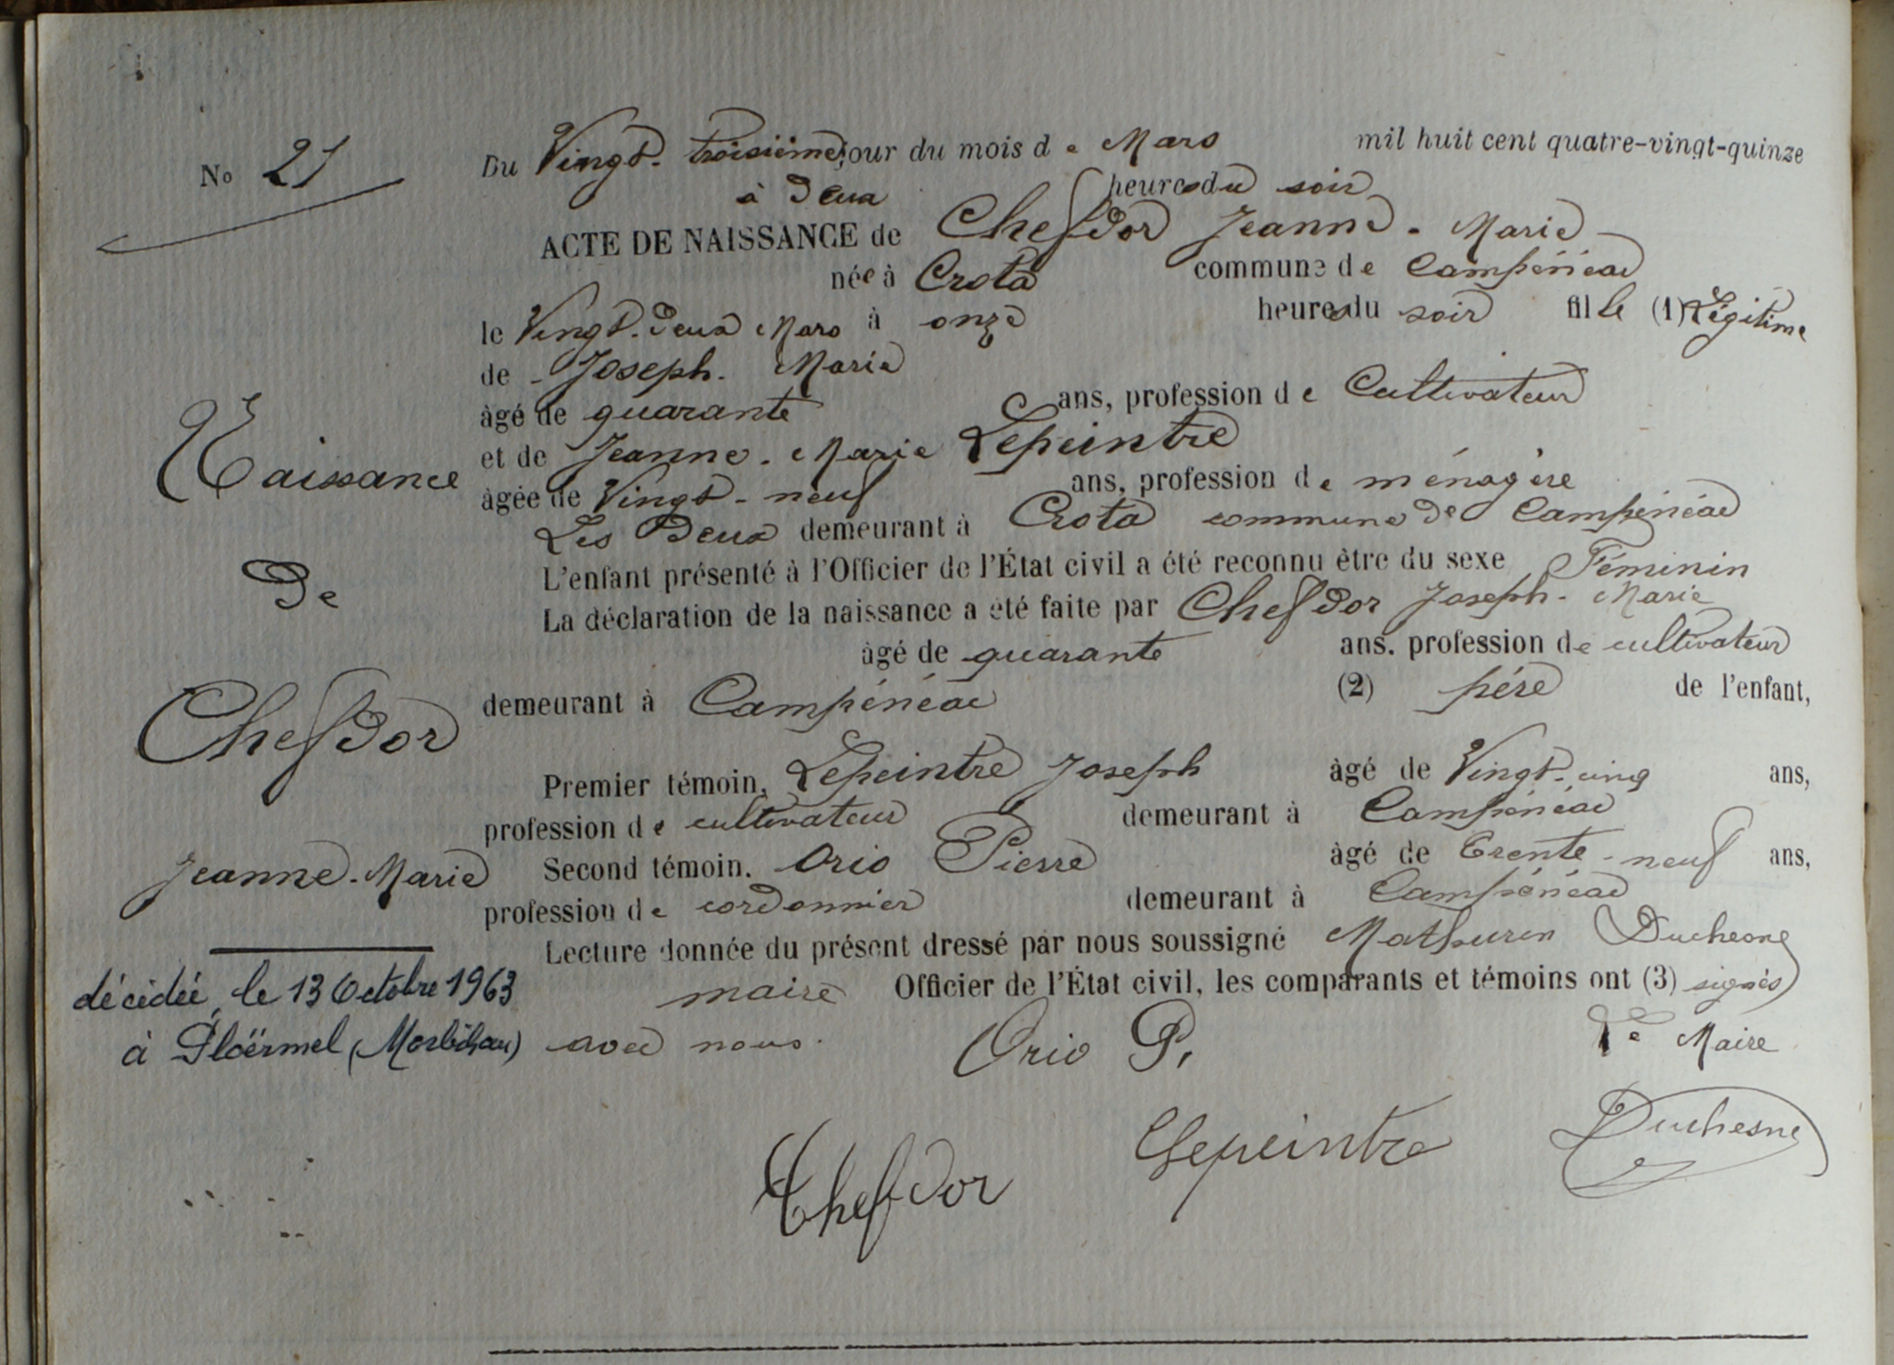 No 21
Du Vingt-troisième jour du mois de Mars mil huit cent quatre-vingt-quinze
à Deux heures du soir
ACTE DE NAISSANCE de Chefdor Jeanne-Marie
née à Crota commune de Campénéac
le Vingt-deux Mars à onze heures du soir fille (1) Légitime
de Joseph-Marie
âgé de quarante ans, profession de Cultivateur
et de Jeanne-Marie Lepeintre
âgée de Vingt-neuf ans, profession de ménagère
Les Deux demeurant à Crota commune de Campénéac
L'enfant présenté à l'Officier de l'État civil a été reconnu être du sexe Féminin
La déclaration de la naissance a été faite par Chefdor Joseph-Marie
âgé de quarante ans. profession de cultivateur
demeurant à Campénéac (2) père de l'enfant,
Premier témoin, Lepeintre Joseph âgé de Vingt-cinq ans,
profession de cultivateur demeurant à Campénéac
Second témoin. Orio Pierre âgé de Trente-neuf ans,
profession de cordonnier demeurant à Campénéac
Lecture donnée du présent dressé par nous soussigné Mathurin Duchesne
maire Officier de l'État civil, les comparants et témoins ont (3) signés
avec nous.
Orio P.
Le Maire
Chefdor
Lepeintre
Duchesne
Naissance
De
Chefdor
Jeanne-Marie
décédée, le 13 Octobre 1963
à Ploërmel (Morbihan)